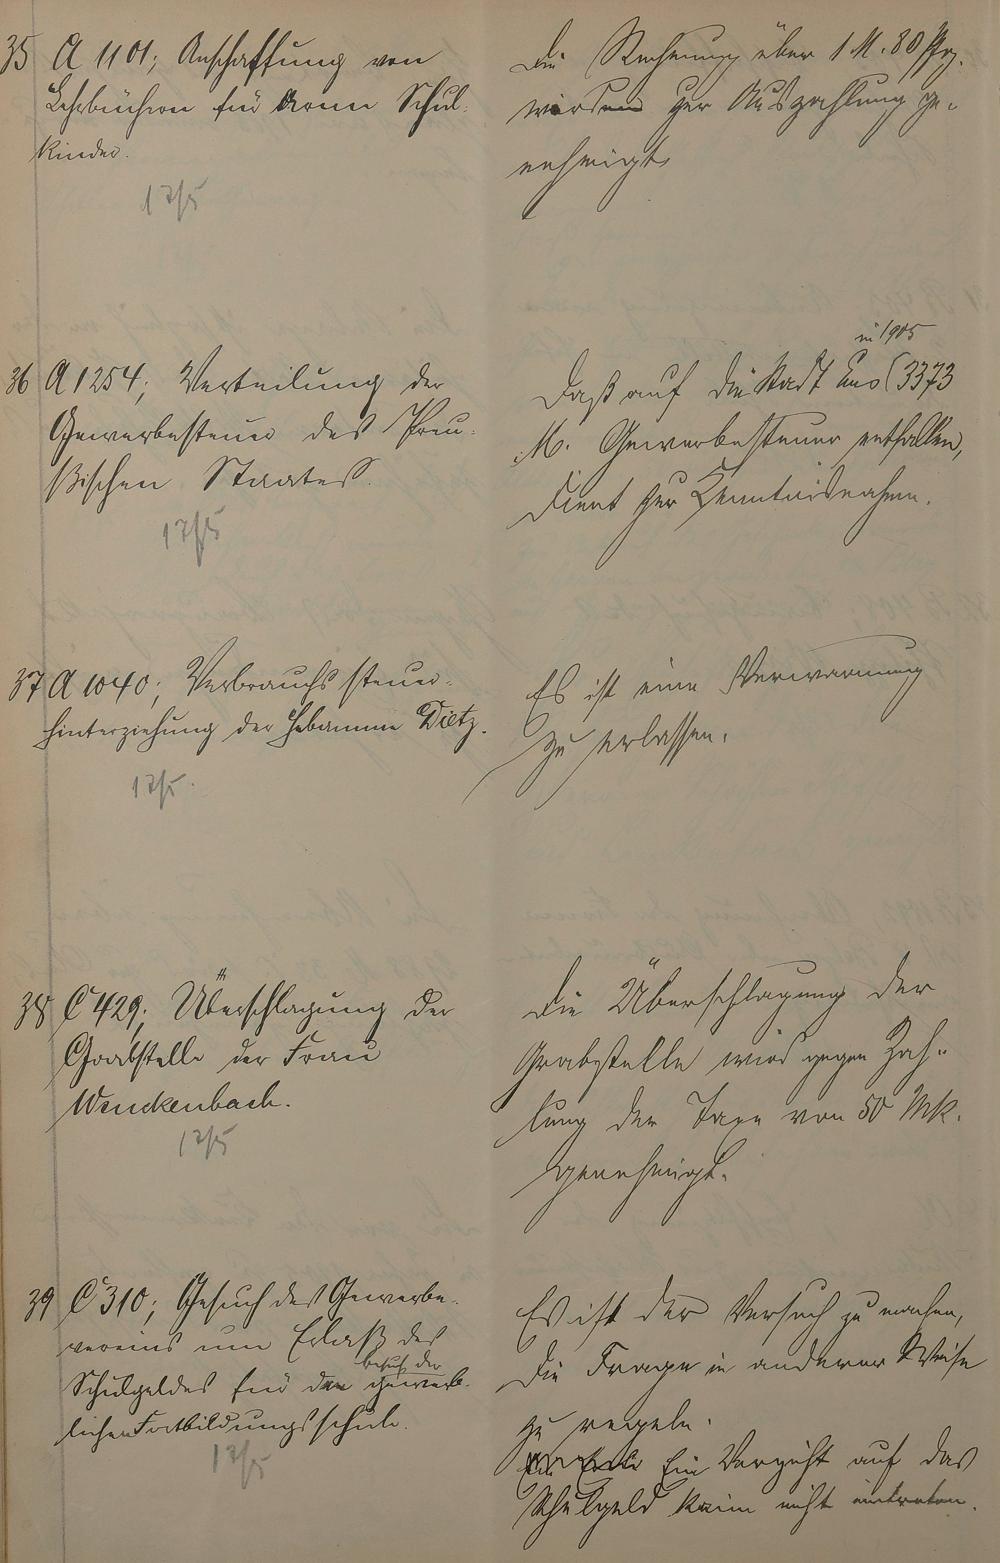 35 A 1101; Anschaffung von
Lehrbüchern für arme Schul-
kinder.
12/5
Die Rechnung über 1 M. 80 Pfg.
wird zur Auszahlung ge-
nehmigt.
36 A 1254; Verteilung der
Gewerbesteuer des Preu-
ßischen Staates.
12/5
in 1905
Daß auf die Stadt Ems 3373
M. Gewerbesteuer entfallen,
dient zur Kenntnisnahme.
37 A 1040; Verbrauchssteuer-
hinterziehung der Hebamme Dietz.
12/5.
Es ist eine Verwarnung
zu erlassen.
38 C 429; Überschlagung der
Grabstelle der Frau
Winckenbach.
12/5
Die Überschlagung der
Grabstelle wird gegen Zah-
lung der Taxe von 50 Mk.
genehmigt.
39 C 310; Gesuch des Gewerbe-
vereins um Erlaß des
besuch der
Schulgeldes für den gewerb-
lichen Fortbildungsschule.
12/5
Es ist der Versuch zu machen,
die Frage in anderer Weise
zu regeln.
Ein Verzicht auf das
Schulgeld kann nicht eintreten.